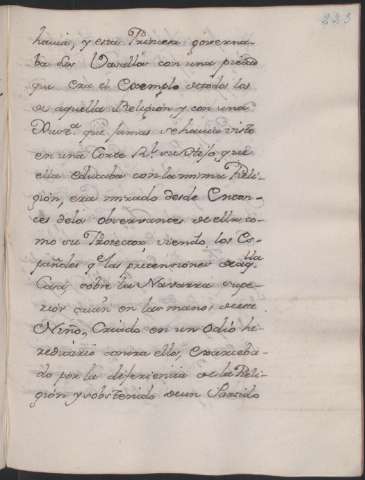 223
havia, y esta Princesa governa-
ba sus Vasallos con una piedad
que era el Exemplo de todos los
de aquella Religion, y con una
que jamas se havia visto
en una Corte Rl. su Hijo, que
ella educaba con la misma Reli-
gión, era mirado desde Enton-
ces de los observantes de ella co-
mo su Protector, viendo los Es-
pañoles qe. las pretensiones de aqlla.
Casa sobre la Navarra supe-
rior caian en las manos de este
Niño, Criado en un odio he-
reditario contra ellos,
do por la diferiencia de la Reli-
gión y sobstenido de un Partido